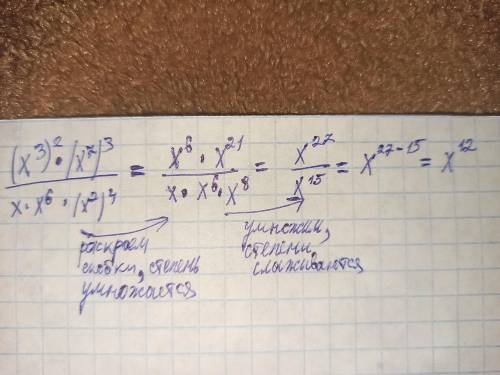 (x³)² · (x⁷)³ / x · x⁶ · (x²)⁴ = x⁶ · x²¹ / x · x⁶ · x⁸ = x²⁷ / x¹⁵ = x²⁷⁻¹⁵ = x¹²
раскроем
скобки, степень
умножается
умножим,
степени
слаживаются